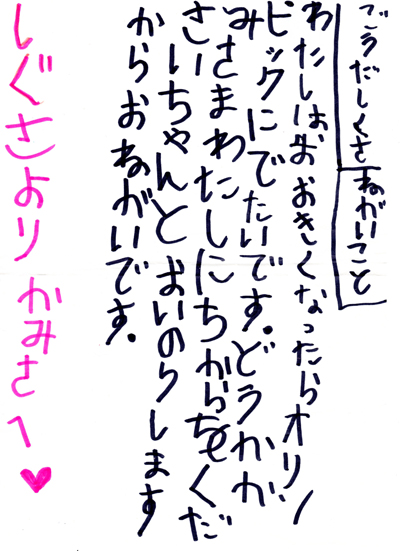 ごうだしくさ ねがいこと
わたしはおおきくなったらオリン
ピックにでたいです。どうかか
みさまわたしにちからをくだ
さいちゃんとおいのりします
からおねがいです。
しぐさより かみさへ♥